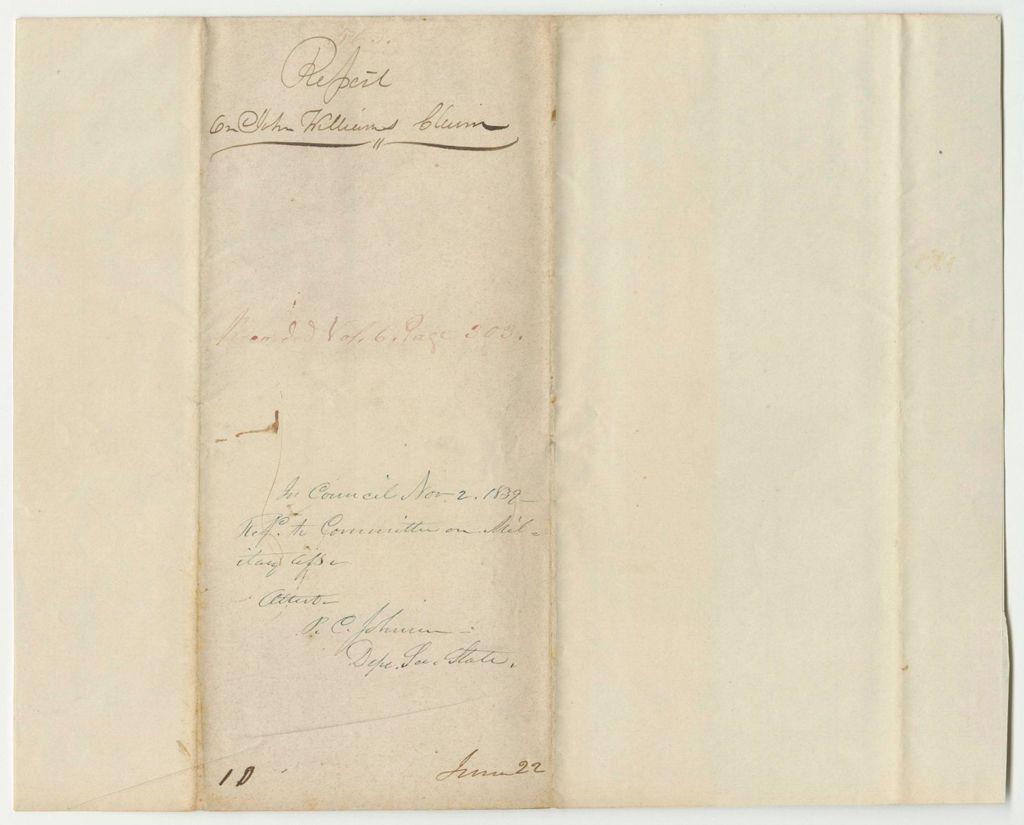 Report
On John Williams Claim
Recorded Vol. 6. Page 303.
In Council Nov. 2. 1839
Ref. to Committee on Mil-
itary affs
Attest
P. C. Johnson
Depe. Sec. State.
10 June 22